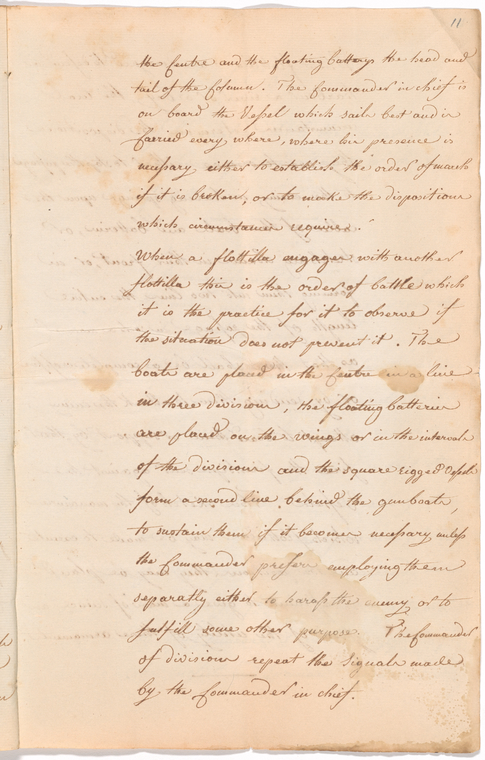 11
the Centre and the floating batterys the head and
tail of the Column. The Commander in chief is
on board the Vessel which sails best and is
carried every where, where his presence is
necessary either to establish the order of march
if it is broken, or to make the dispositions
which circumstances requires.
When a flottilla engages with another
flottilla this is the order of battle which
it is the practice for it to observe if
the situation does not prevent it. The
boats are placed in the Centre in a line
in three divisions, the floating batteries
are placed on the wings or in the intervals
of the divisions and the square rigged Vessels
form a second line behind the gunboats,
to sustain them if it becomes necessary unless
the Commander prefers employing them
separatly either to harass the enemy or to
fulfill some other purpose. The Commanders
of divisions repeat the signals made
by the Commander in chief.